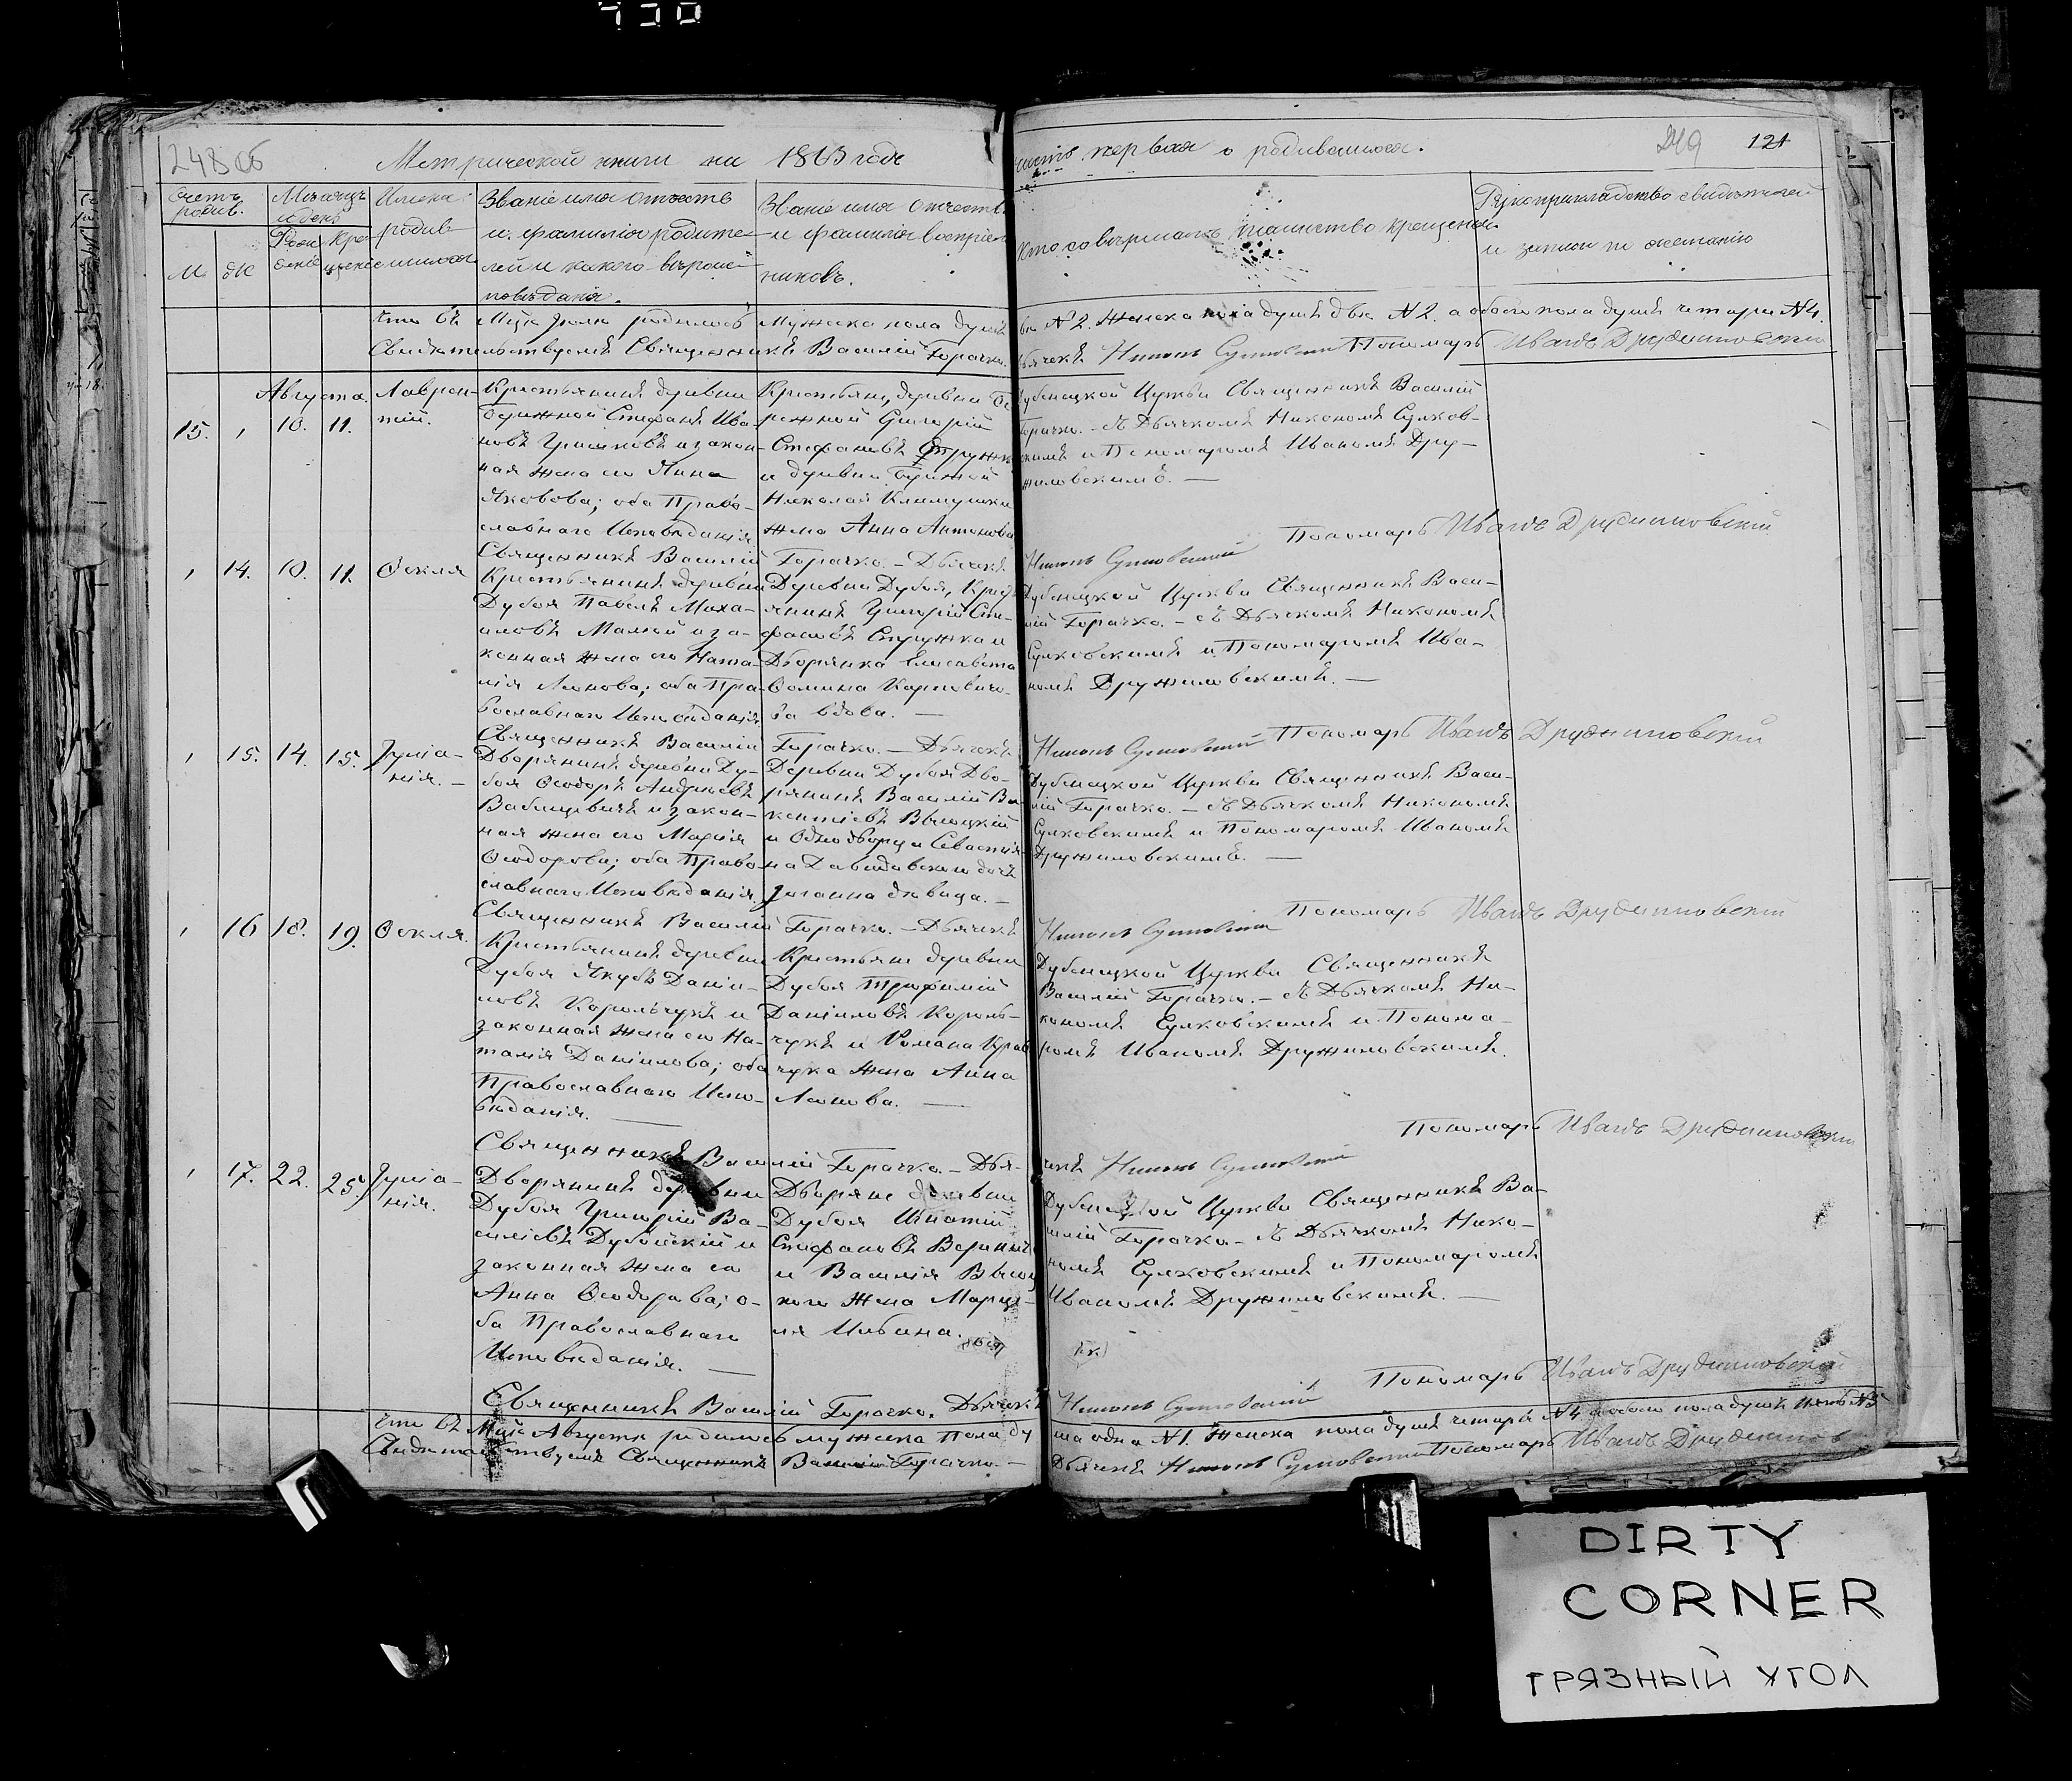 430
248 об
Метрической книги на 1863 годъ
часть первая о родившихся.
249
121
Счетъ родив.
М.
Ж
Мѣсяцъ и день
Рож-
деніе
Кре-
щеніе
Имена
родив-
шихся
Званіе имя отчество
и фамилія родите-
лей и какого вѣроис-
повѣданія.
Званіе имя отчест.
и фамилія воспріем-
никовъ.
Кто совершалъ таинство крещенія.
Рукоприкладство свидѣтелей
и записи по желанію
Что въ Мцѣ Іюлѣ родилось Мужеска пола душъ
двѣ N 2. Женска пола душъ двѣ N 2. а обоего пола душъ четыре N 4.
Свидѣтельствуемъ Священникъ Василій Горачко.
Дьячекъ Никонъ Сулковскій Пономарь Иванъ Дружиловскій
Августа.
15. , 10. 11.
Лаврен-
тій.
Крестьянинъ деревни
Бережной Стефанъ Ива-
новъ Гришковъ и закон-
ная жена его Анна
Яковова; оба Право-
славнаго Исповѣданія
Крестьяне, деревни Бе-
режной Григорій
Стефановъ Стружк
и деревни Бережной
Николая Климушки
жена Анна Антонова
Дубенецкой Церкви Священникъ Василій
Горачко. - съ Дьячкомъ Никономъ Сулков-
скимъ и Пономаромъ Иваномъ Дру-
жиловскимъ. —
Священникъ Василій Горачко. - Дьячекъ
Никонъ Сулковскій
Пономарь Иванъ Дружиловскій
, 14. 10. 11. Ѳекля
Крестьянинъ деревни
Дубоя Павелъ Миха-
иловъ Малей и за-
конная жена его Ната-
лія Леонова; оба Пра-
вославнаго Исповѣданія
Деревни Дубоя, Крест
янинъ Григорій Сте-
фановъ Стружка и
Дворянка Елисавета
Ѳомина Карповичо-
ва вдова. —
Дубенецкой Церкви Священникъ Васи-
лій Горачко. - съ Дьячкомъ Никономъ
Сулковскимъ и Пономаромъ Ива-
номъ Дружиловскимъ. —
Священникъ Василій Горачко. — Дьячекъ
Никонъ Сулковскій
Пономарь Иванъ Дружиловскій
, 15. 14. 15.
Іуліа-
нія. —
Дворянинъ деревни Ду-
боя Ѳеодоръ Андреевъ
Вабищевичъ и закон-
ная жена его Марія
Ѳеодорова; оба Право-
славнаго Исповѣданія.
Деревни Дубоя Дво-
рянинъ Василій Ви-
кентіевъ Высоцкій
и Однодворца Севастія-
на Давидовскаго дочь
Іоганна дѣвица. —
Дубенецкой Церкви Священникъ Васи-
лій Горачко. — съ Дьячкомъ Никономъ
Сулковскимъ и Пономаромъ Иваномъ
Дружиловскимъ. —
Священникъ Василій Горачко. — Дьячекъ
Никонъ Сулковскій
Пономарь Иванъ Дружиловскій
, 16 18. 19. Ѳекля.
Крестьянинъ деревни
Дубоя Якубъ Даніи-
ловъ Корольчукъ и
законная жена его На-
талія Даніилова; оба
Православнаго Испо-
вѣданія. —
Крестьяне деревни
Дубоя Трофимій
Даніиловъ Король-
чукъ и Романа Крав
чука жена Анна
Леонова. —
Дубенецкой Церкви Священникъ
Василій Горачко. — съ Дьячкомъ Ни-
кономъ Сулковскимъ и Понома-
ромъ Иваномъ Дружиловскимъ.
Священникъ Василій Горачко. — Дья-
чекъ Никонъ Сулковскій
Пономарь Иванъ Дружиловскій
, 17. 22. 25.
Іуліа-
нія.
Дворянинъ деревни
Дубоя Григорій Ва-
силіевъ Дубойскій и
законная жена его
Анна Ѳеодорова; о-
ба Православнаго
Исповѣданія. —
Дворяне деревни
Дубоя Игнатій
Стефановъ Верениче
и Василія Высоц
кого жена Марце-
ля
Дубенецкой Церкви Священникъ Ва-
силій Горачко — съ Дьячкомъ Нико-
номъ Сулковскимъ и Пономаромъ
Иваномъ Дружиловскимъ. —
Священникъ Василій Горачко. Дьячекъ
Никонъ Сулковскій
Пономарь Иванъ Дружиловскій
Что въ Мцѣ Августѣ родилось мужеска пола ду
ша одна N 1. Женска пола душъ четыре N 4 а обоего пола душъ пять N 5
Свидѣтельствуемъ Священникъ Василій Горачко. —
Дьячекъ Никонъ Сулковскій Пономарь Иванъ Дружиловск
DIRTY
CORNER
ГРЯЗНЫЙ УГОЛ